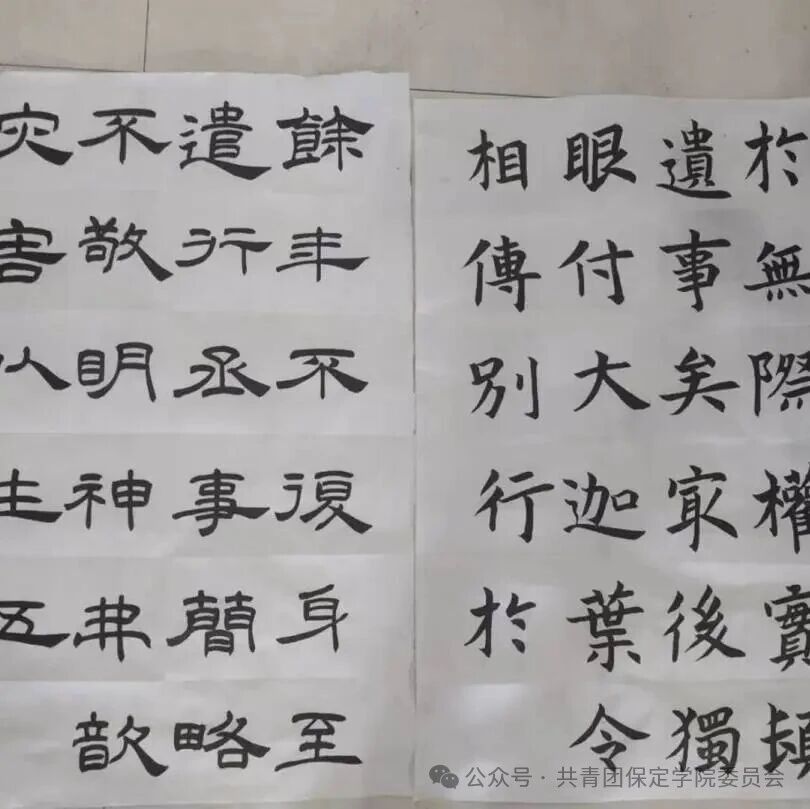 於無際權實頓
遺事矣㝡後獨
眼付大迦葉令
相傳別行於
餘年不復身至
遣行丞事簡略
不敬明神弗歆
灾害以生五
公众号 · 共青团保定学院委员会